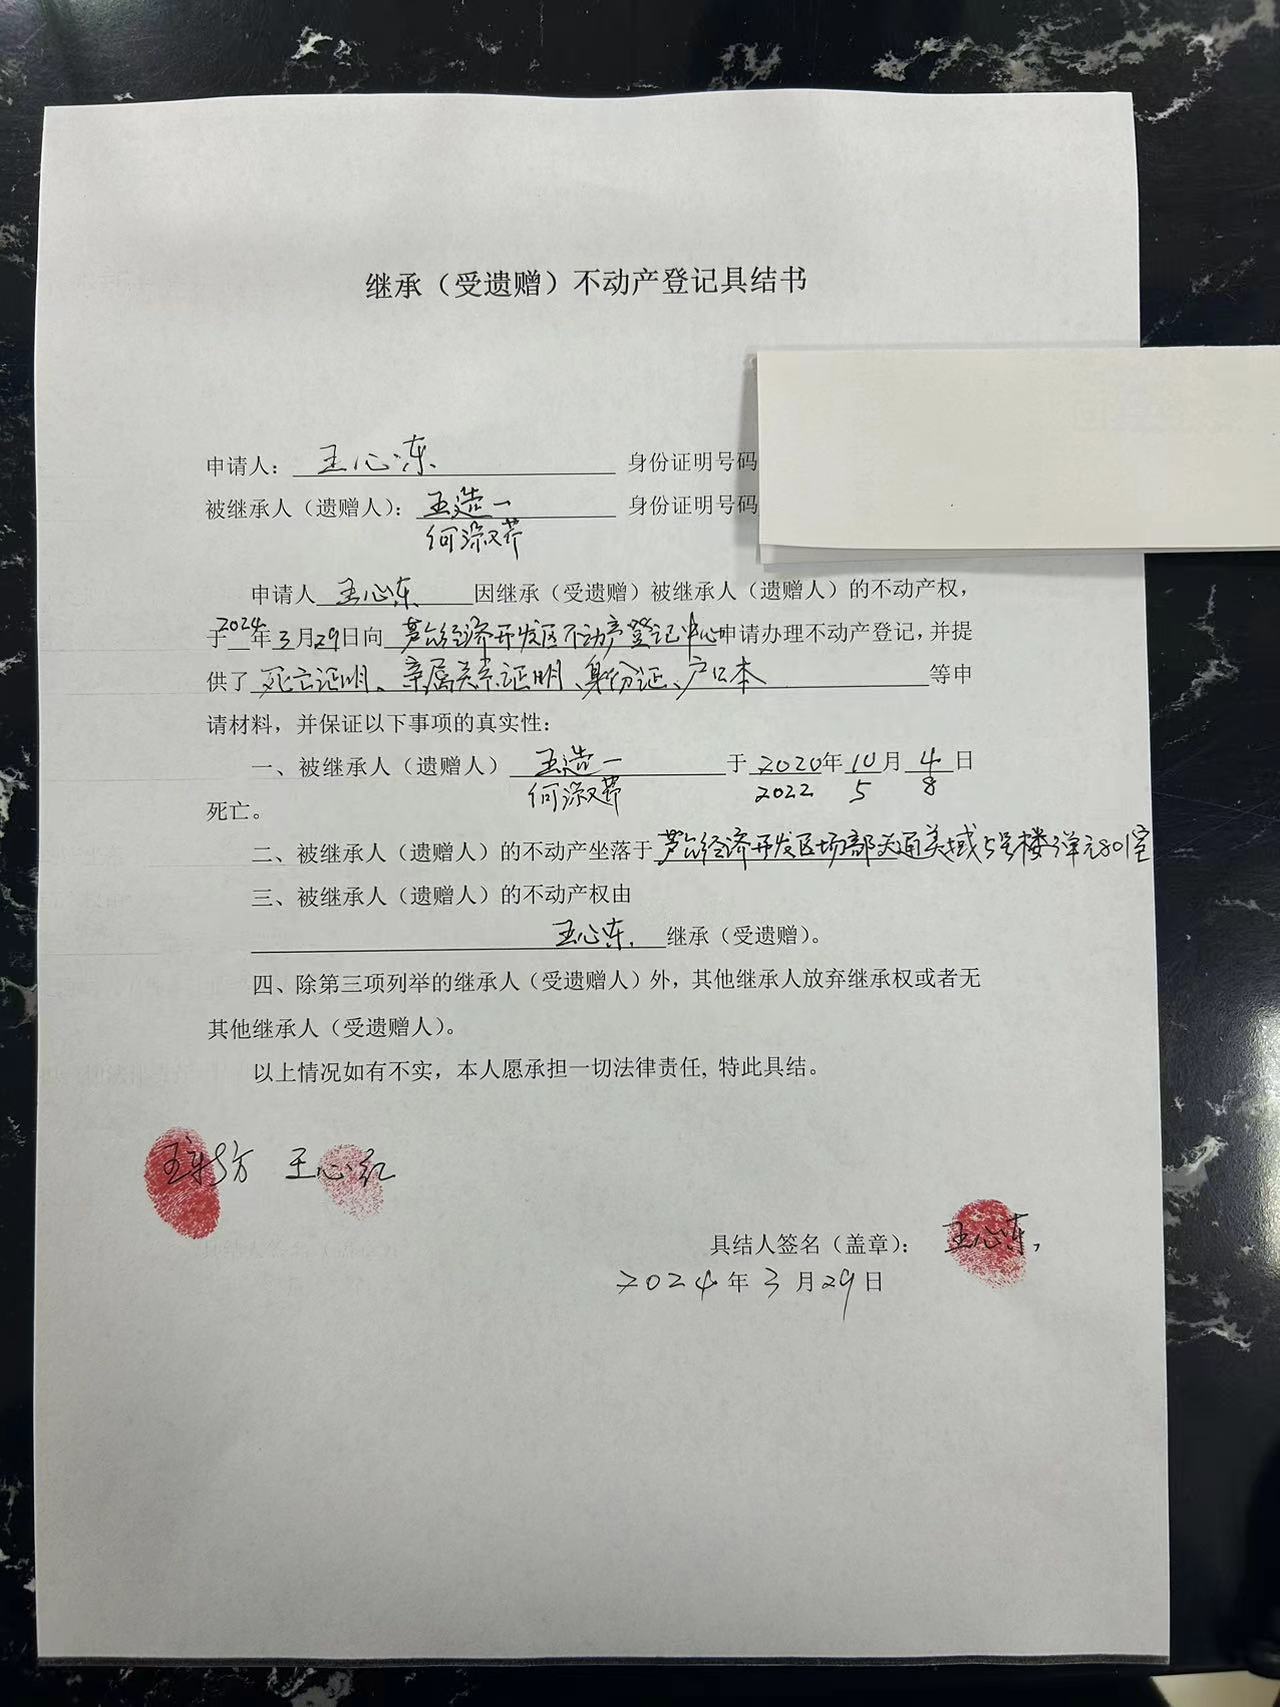 继承（受遗赠）不动产登记具结书
申请人： 王心东 身份证明号码
被继承人（遗赠人）： 王造一 身份证明号码
何淑芹
申请人 王心东 因继承（受遗赠）被继承人（遗赠人）的不动产权，
于2024年3月29日向 芦台经济开发区不动产登记中心申请办理不动产登记，并提
供了 死亡证明、亲属关系证明、身份证、户口本 等申
请材料，并保证以下事项的真实性：
一、被继承人（遗赠人） 王造一 于 2020年 10月 4日
何淑芹 2022 5 8
死亡。
二、被继承人（遗赠人）的不动产坐落于 芦台经济开发区场部天通美域5号楼3单元801室
三、被继承人（遗赠人）的不动产权由
王心东 继承（受遗赠）。
四、除第三项列举的继承人（受遗赠人）外，其他继承人放弃继承权或者无
其他继承人（受遗赠人）。
以上情况如有不实，本人愿承担一切法律责任, 特此具结。
王心红
具结人签名（盖章）： 王心东
2024年3月29日